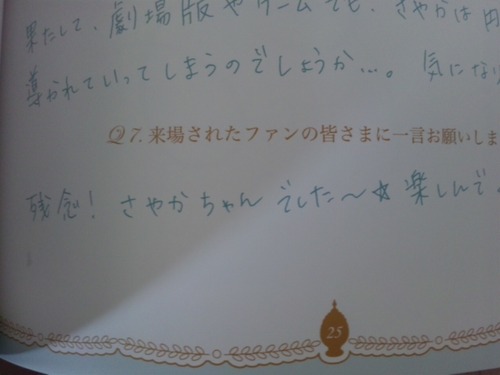 果たして、劇場版やゲームでも、さやかは円
導かれていってしまうのでしょうか…。気にな
Q7. 来場されたファンの皆さまに一言お願いしま
残念！さやかちゃんでした～☆楽しんで
25